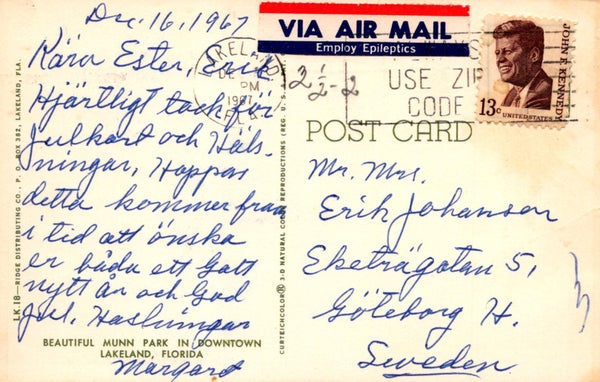 Dec. 16, 1967
Kära Ester, Erik
Hjärtligt tack för
julkort och Häls-
ningar, Hoppas
detta kommer fram
i tid att önska
er båda ett Gott
nytt år och God
jul. Hälsningar
Margaret
VIA AIR MAIL
Employ Epileptics
LAKELAND
DE
PM
1967
FLA
3 1/2 - 2
USE ZIP
CODE
JOHN F. KENNEDY
13c UNITED STATES
POST CARD
Mr. Mrs.
Erik Johanson
Eketrägatan 5,
Göteborg H.
Sweden
LK.18—RIDGE DISTRIBUTING CO., P. O. BOX 382, LAKELAND, FLA.
CURTEICHCOLOR® 3-D NATURAL COLOR REPRODUCTIONS (REG. U.S.A.
BEAUTIFUL MUNN PARK IN DOWNTOWN
LAKELAND, FLORIDA